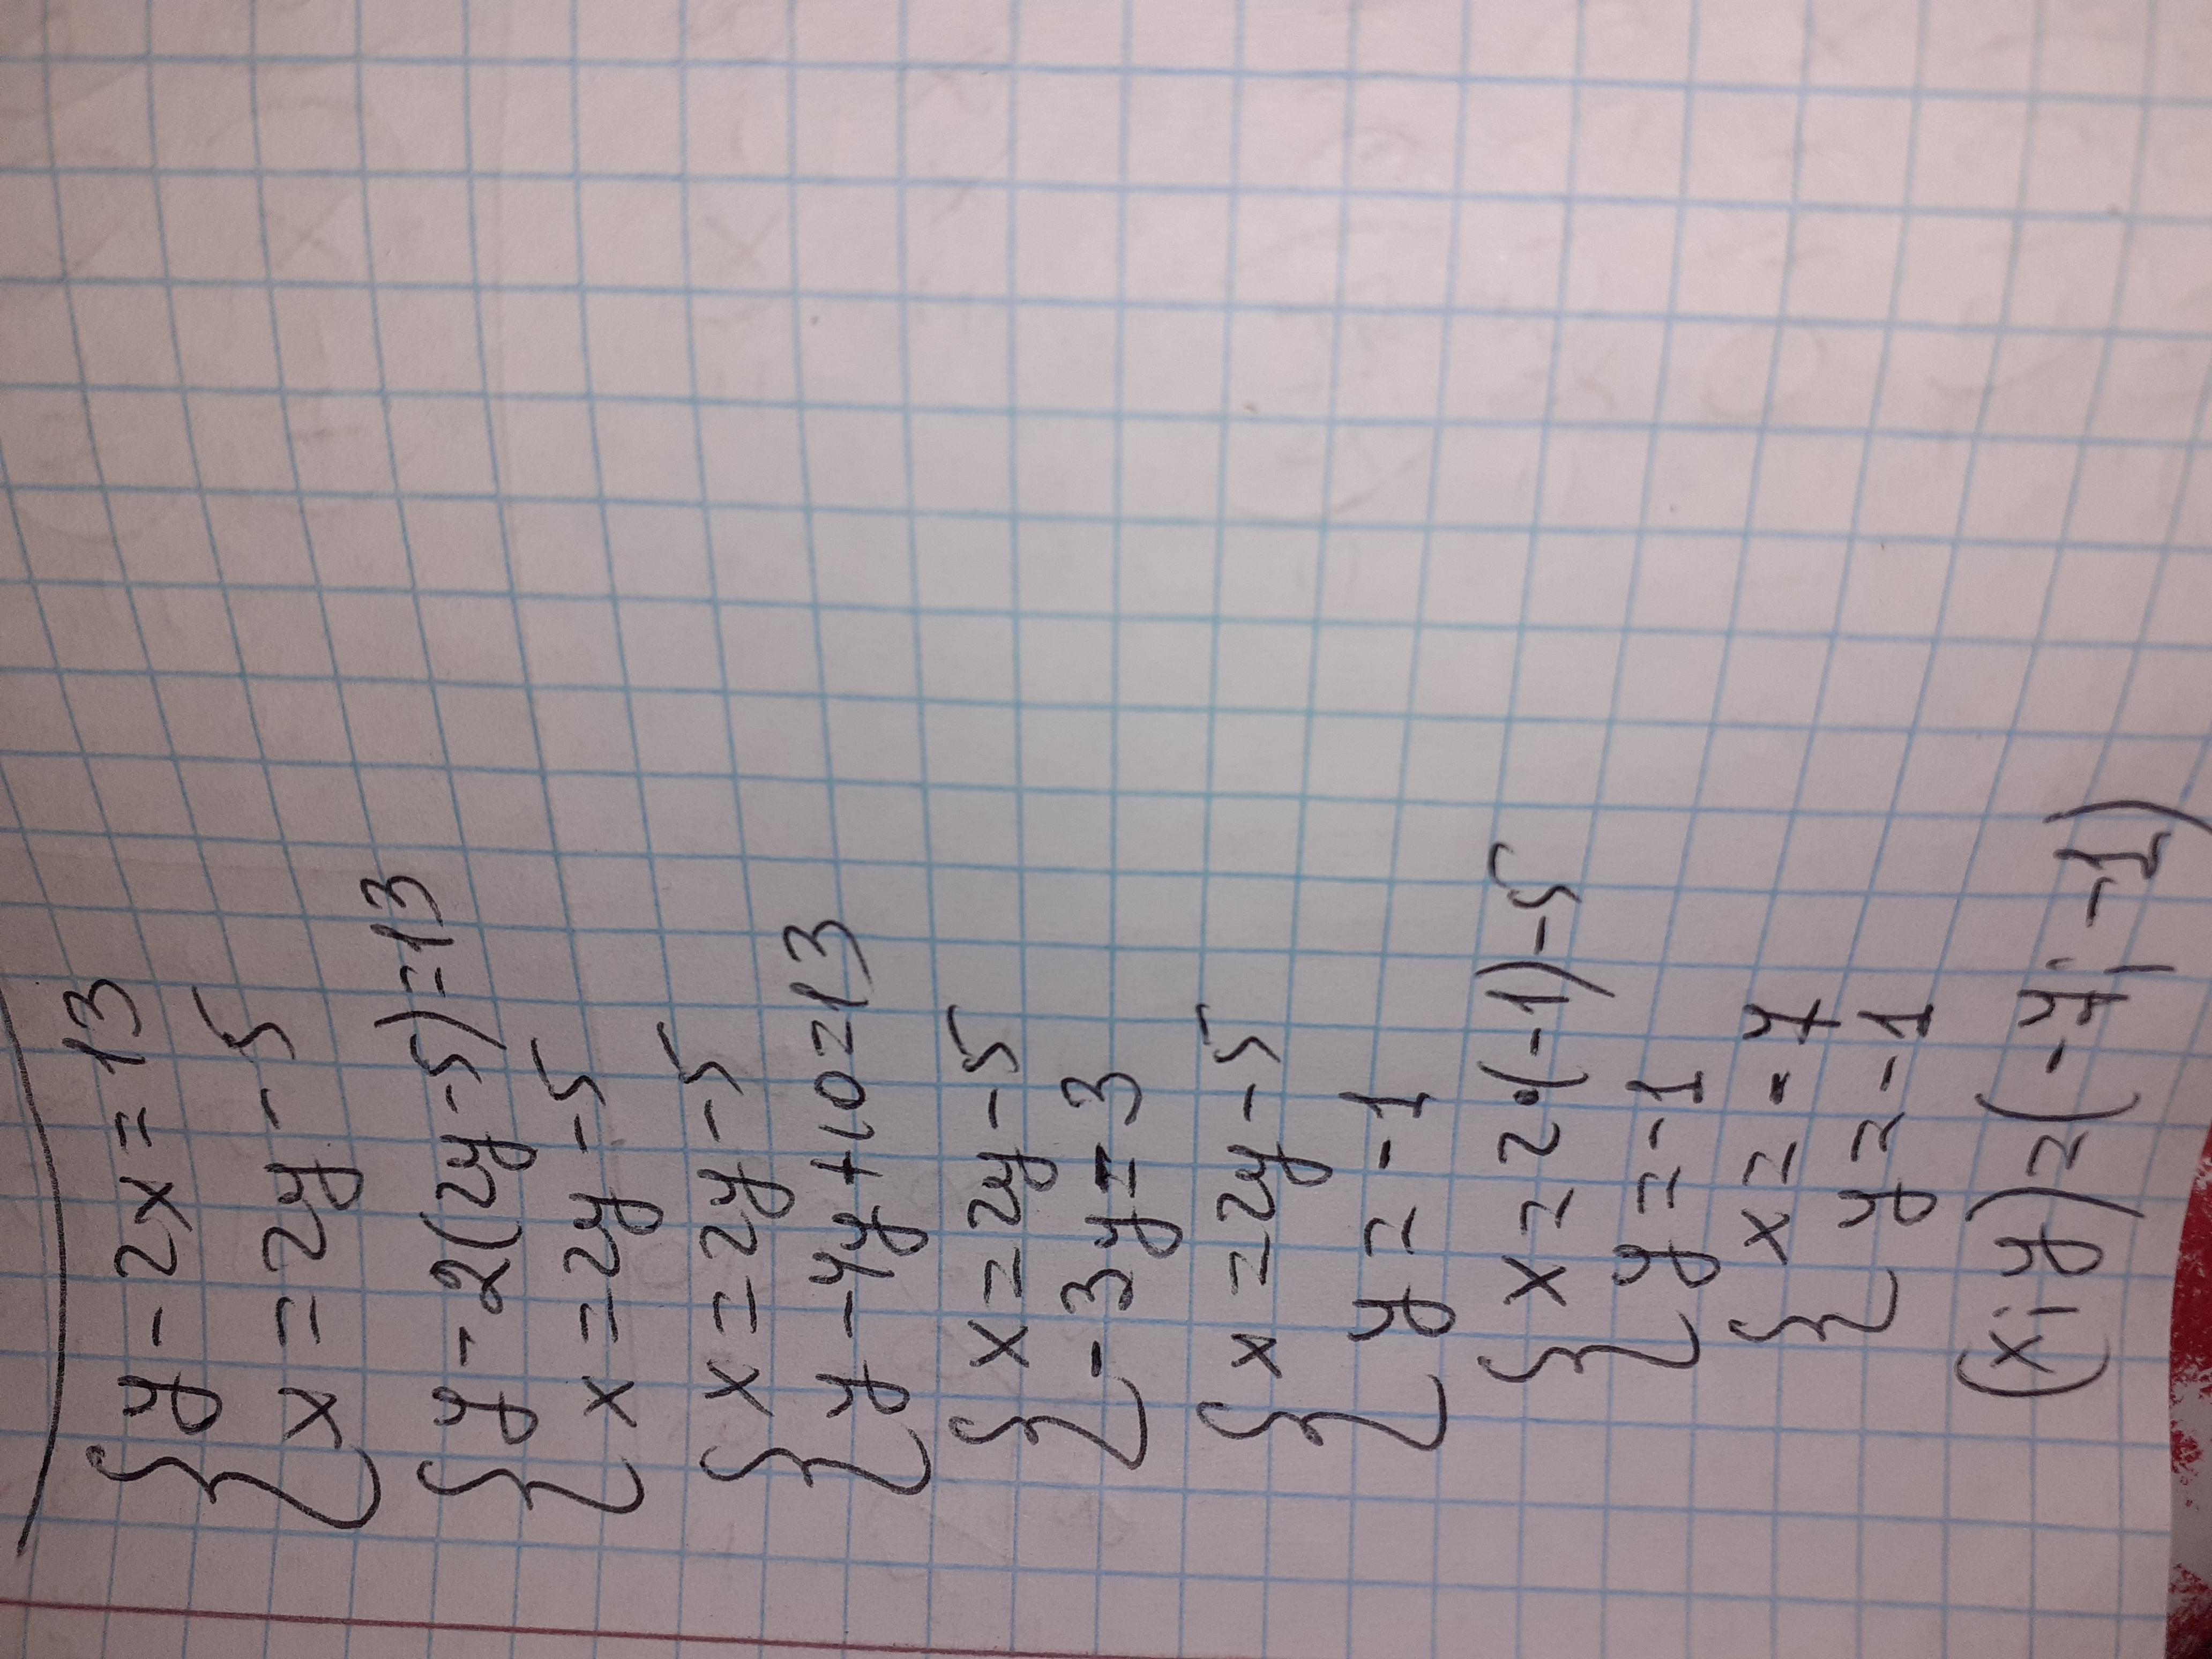 y - 2x = 13
x = 2y - 5
y - 2(2y - 5) = 13
x = 2y - 5
x = 2y - 5
y - 4y + 10 = 13
x = 2y - 5
-3y = 3
x = 2y - 5
y = -1
x = 2·(-1) - 5
y = -1
x = -7
y = -1
(x; y) = (-7; -1)